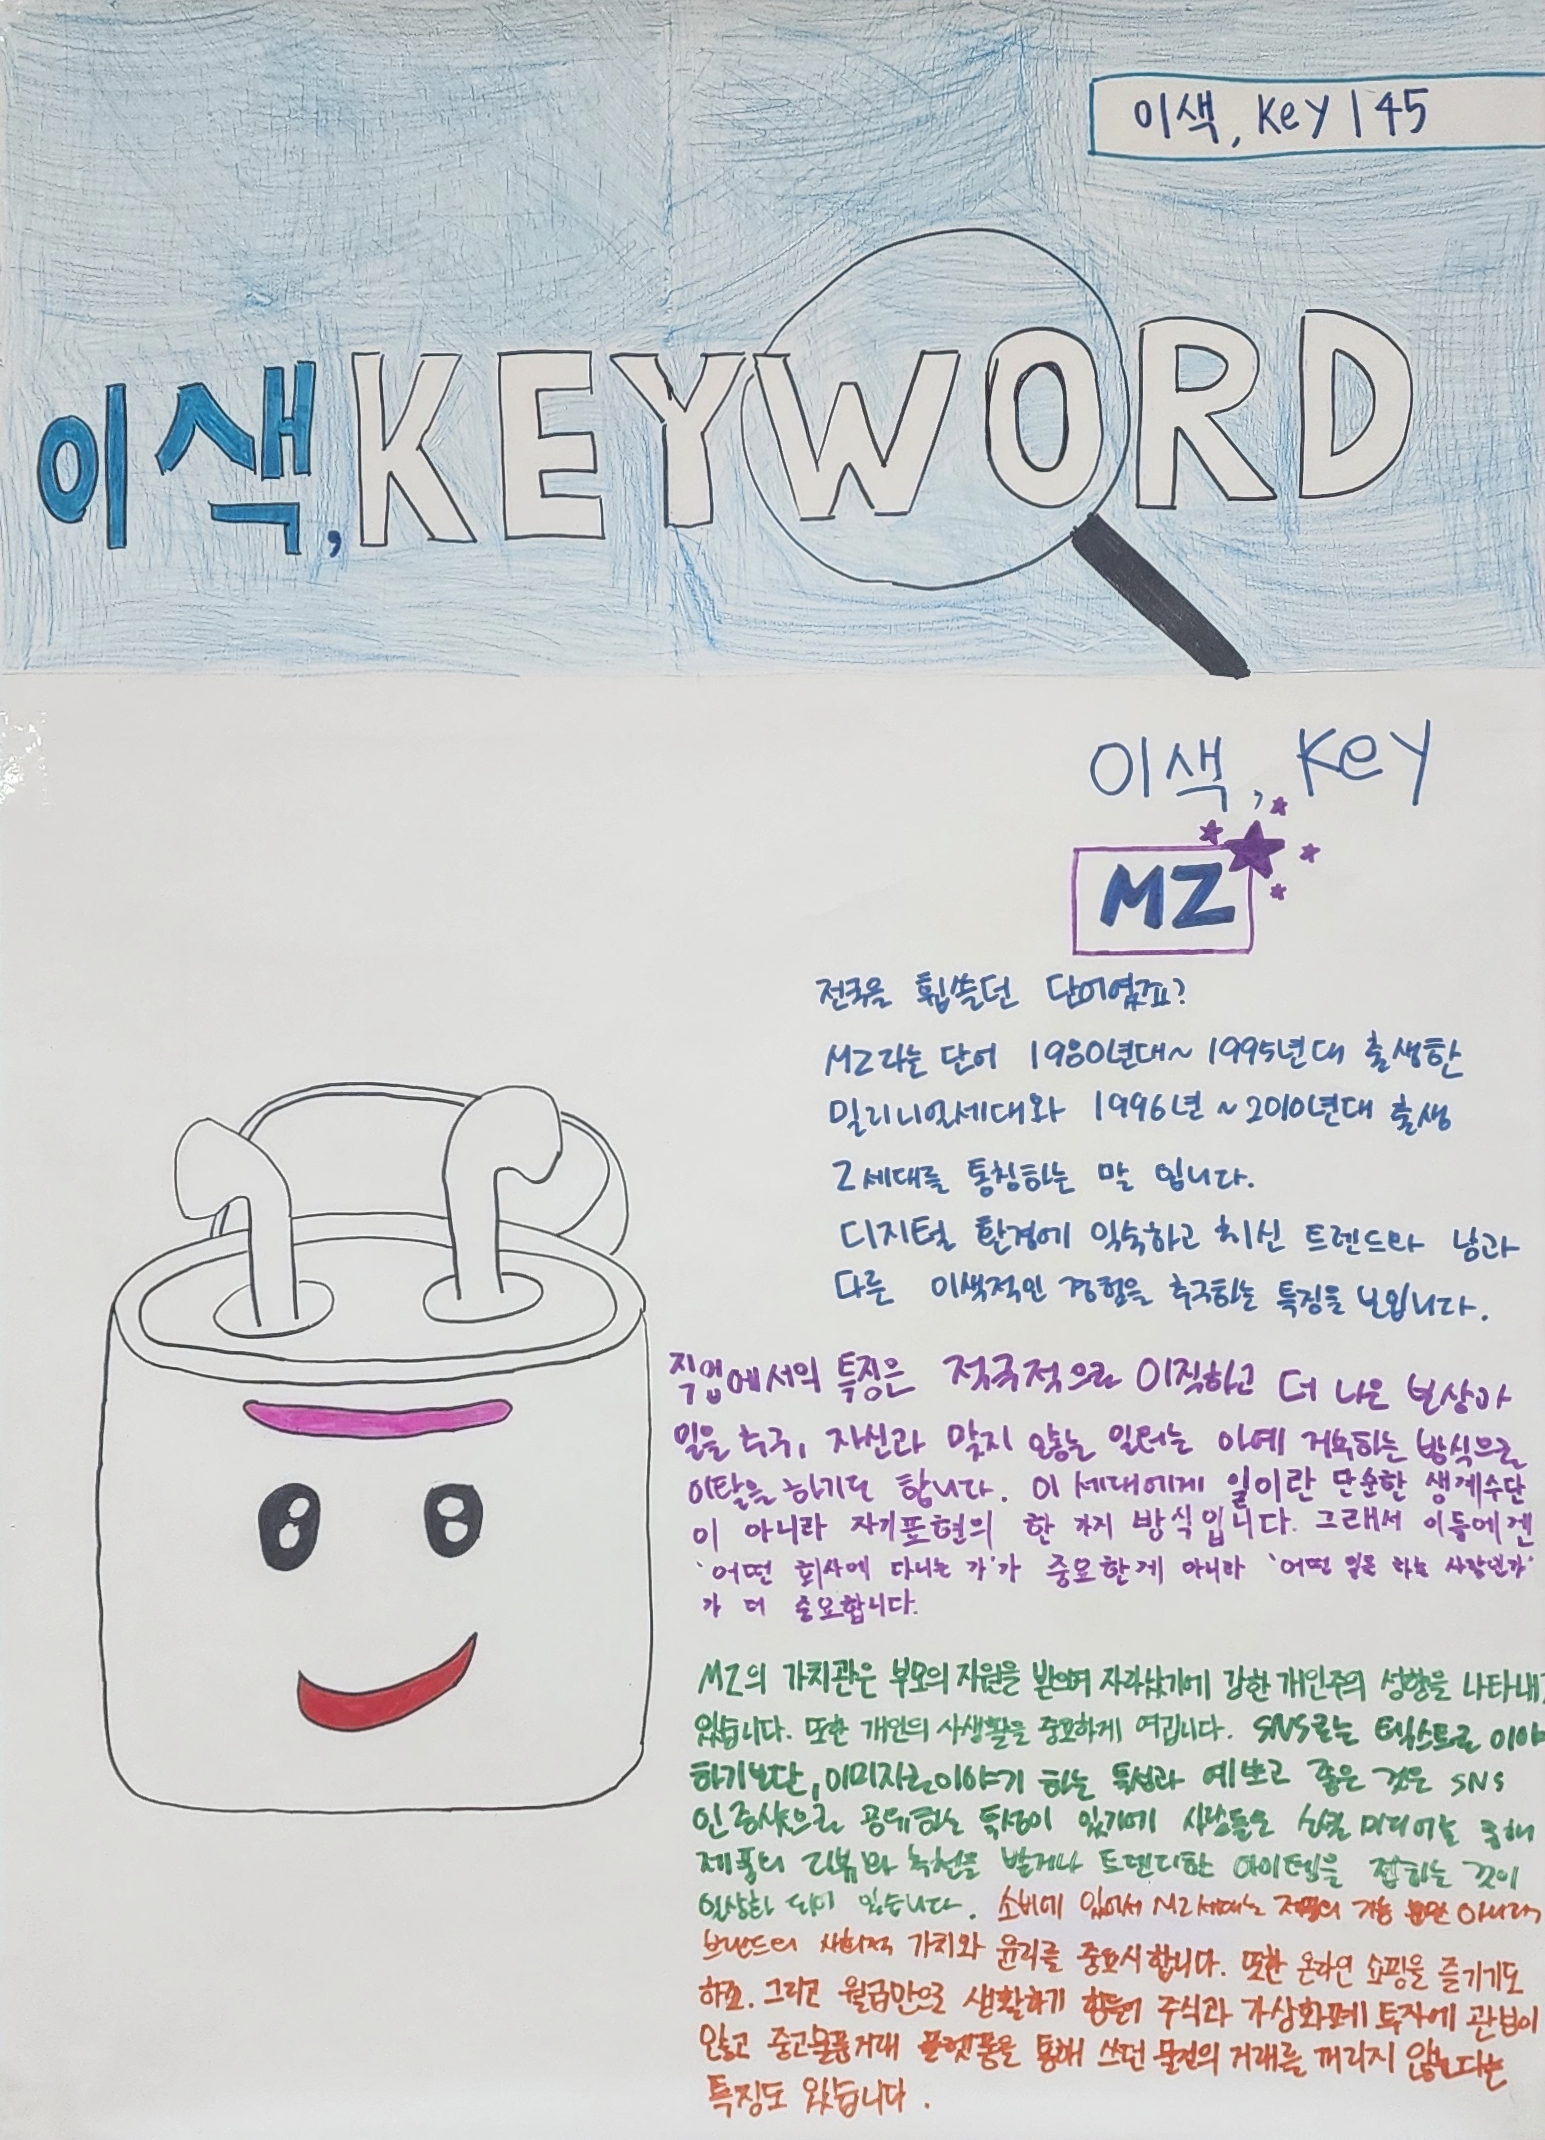 이색, Key | 45
이색, KEYWORD
이색, Key
MZ
전국을 휩쓸던 단어였죠?
MZ라는 단어 1980년대~1995년대 출생한
밀리니얼세대와 1996년~2010년대 출생
Z세대를 통칭하는 말 입니다.
디지털 환경에 익숙하고 최신 트렌드와 남과
다른 이색적인 경험을 추구하는 특징을 보입니다.
직업에서의 특징은 적극적으로 이직하고 더 나은 보상과
일을 추구, 자신과 맞지 않는 일터는 아예 거부하는 방식으로
이탈을 하기도 합니다. 이 세대에게 일이란 단순한 생계수단
이 아니라 자기표현의 한 가지 방식입니다. 그래서 이들에겐
'어떤 회사에 다니는 가'가 중요한게 아니라 '어떤 일을 하는 사람인가'
가 더 중요합니다.
MZ의 가치관은 부모의 지원을 받으며 자라났기에 강한 개인주의 성향을 나타내고
있습니다. 또한 개인의 사생활을 중요하게 여깁니다. SNS로는 텍스트로 이야
하기보단, 이미지로 이야기 하는 특성과 예쁘고 좋은 것은 SNS
인증샷으로 공유하는 특성이 있기에 사람들은 소셜 미디어를 통해
제품의 리뷰와 추천을 받거나 트렌디한 아이템을 접하는 것이
일상화 되어 있습니다. 소비에 있어서 MZ세대는 제품의 기능 뿐만 아니라,
브랜드의 사회적 가치와 윤리를 중요시 합니다. 또한 온라인 쇼핑을 즐기기도
하죠. 그리고 월급만으로 생활하기 힘들어 주식과 가상화폐 투자에 관심이
많고 중고물품거래 플랫폼을 통해 쓰던 물건의 거래를 꺼리지 않는다는
특징도 있습니다.